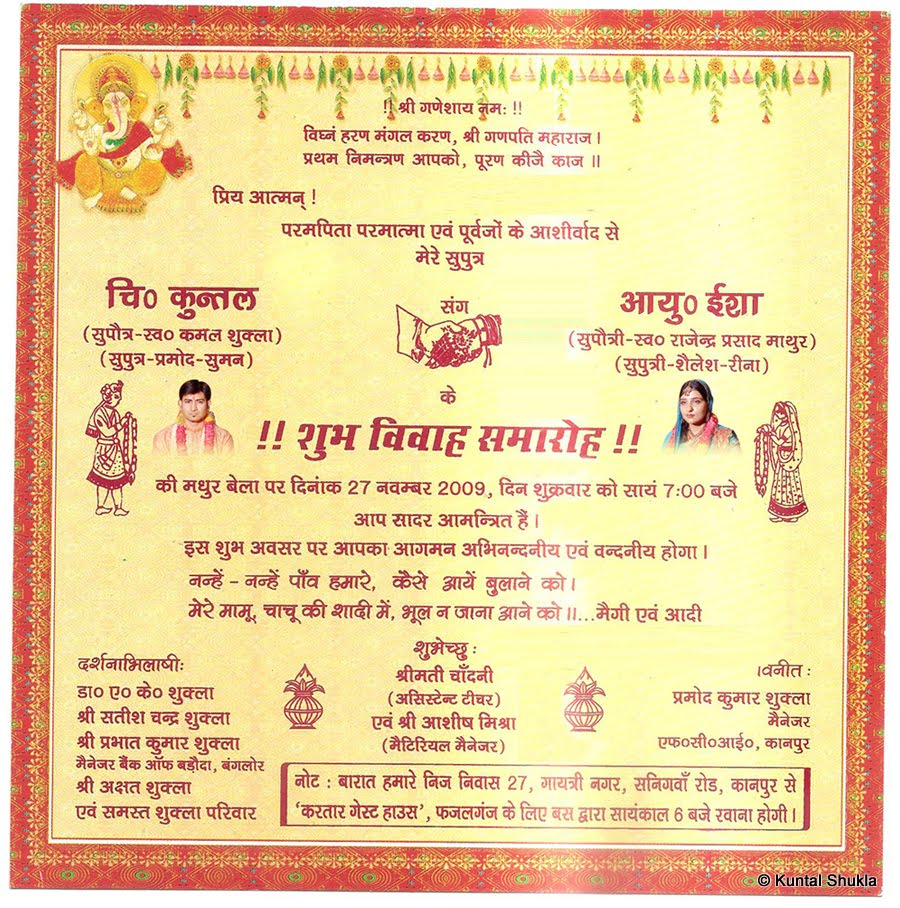 !! श्री गणेशाय नम: !!
विघ्नं हरण मंगल करण, श्री गणपति महाराज।
प्रथम निमन्त्रण आपको, पूरण कीजै काज ॥
प्रिय आत्मन् !
परमपिता परमात्मा एवं पूर्वजों के आशीर्वाद से
मेरे सुपुत्र
चि० कुन्तल
(सुपौत्र-स्व० कमल शुक्ला)
(सुपुत्र-प्रमोद-सुमन)
संग
आयु० ईशा
(सुपौत्री-स्व० राजेन्द्र प्रसाद माथुर)
(सुपुत्री-शैलेश-रीना)
के
!! शुभ विवाह समारोह !!
की मधुर बेला पर दिनांक 27 नवम्बर 2009, दिन शुक्रवार को सायं 7:00 बजे
आप सादर आमन्त्रित हैं।
इस शुभ अवसर पर आपका आगमन अभिनन्दनीय एवं वन्दनीय होगा।
नन्हें - नन्हें पाँव हमारे, कैसे आयें बुलाने को।
मेरे मामू, चाचू की शादी में, भूल न जाना आने को॥...मैगी एवं आदी
दर्शनाभिलाषीः
डा० ए० के० शुक्ला
श्री सतीश चन्द्र शुक्ला
श्री प्रभात कुमार शुक्ला
मैनेजर बैंक ऑफ बड़ौदा, बंगलोर
श्री अक्षत शुक्ला
एवं समस्त शुक्ला परिवार
शुभेच्छु :
श्रीमती चाँदनी
(असिस्टेन्ट टीचर)
एवं श्री आशीष मिश्रा
(मैटिरियल मैनेजर)
विनीत :
प्रमोद कुमार शुक्ला
मैनेजर
एफ०सी०आई०, कानपुर
नोट : बारात हमारे निज निवास 27, गायत्री नगर, सनिगवाँ रोड, कानपुर से
'करतार गेस्ट हाउस', फजलगंज के लिए बस द्वारा सायंकाल 6 बजे रवाना होगी।
© Kuntal Shukla